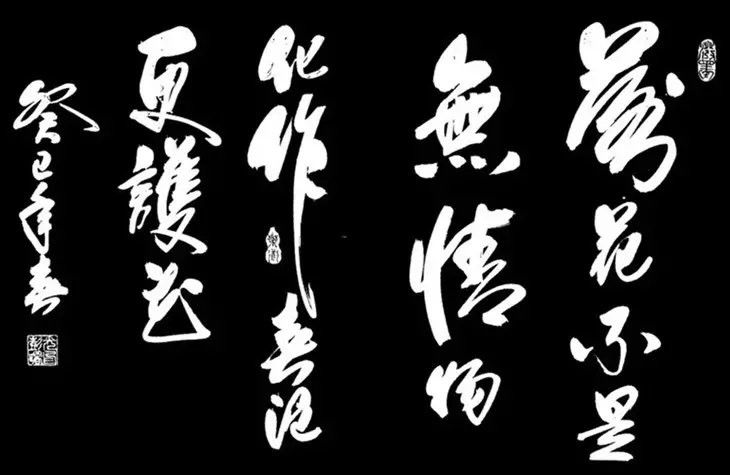 落花不是
無情物
化作春泥
更護花
癸巳年春